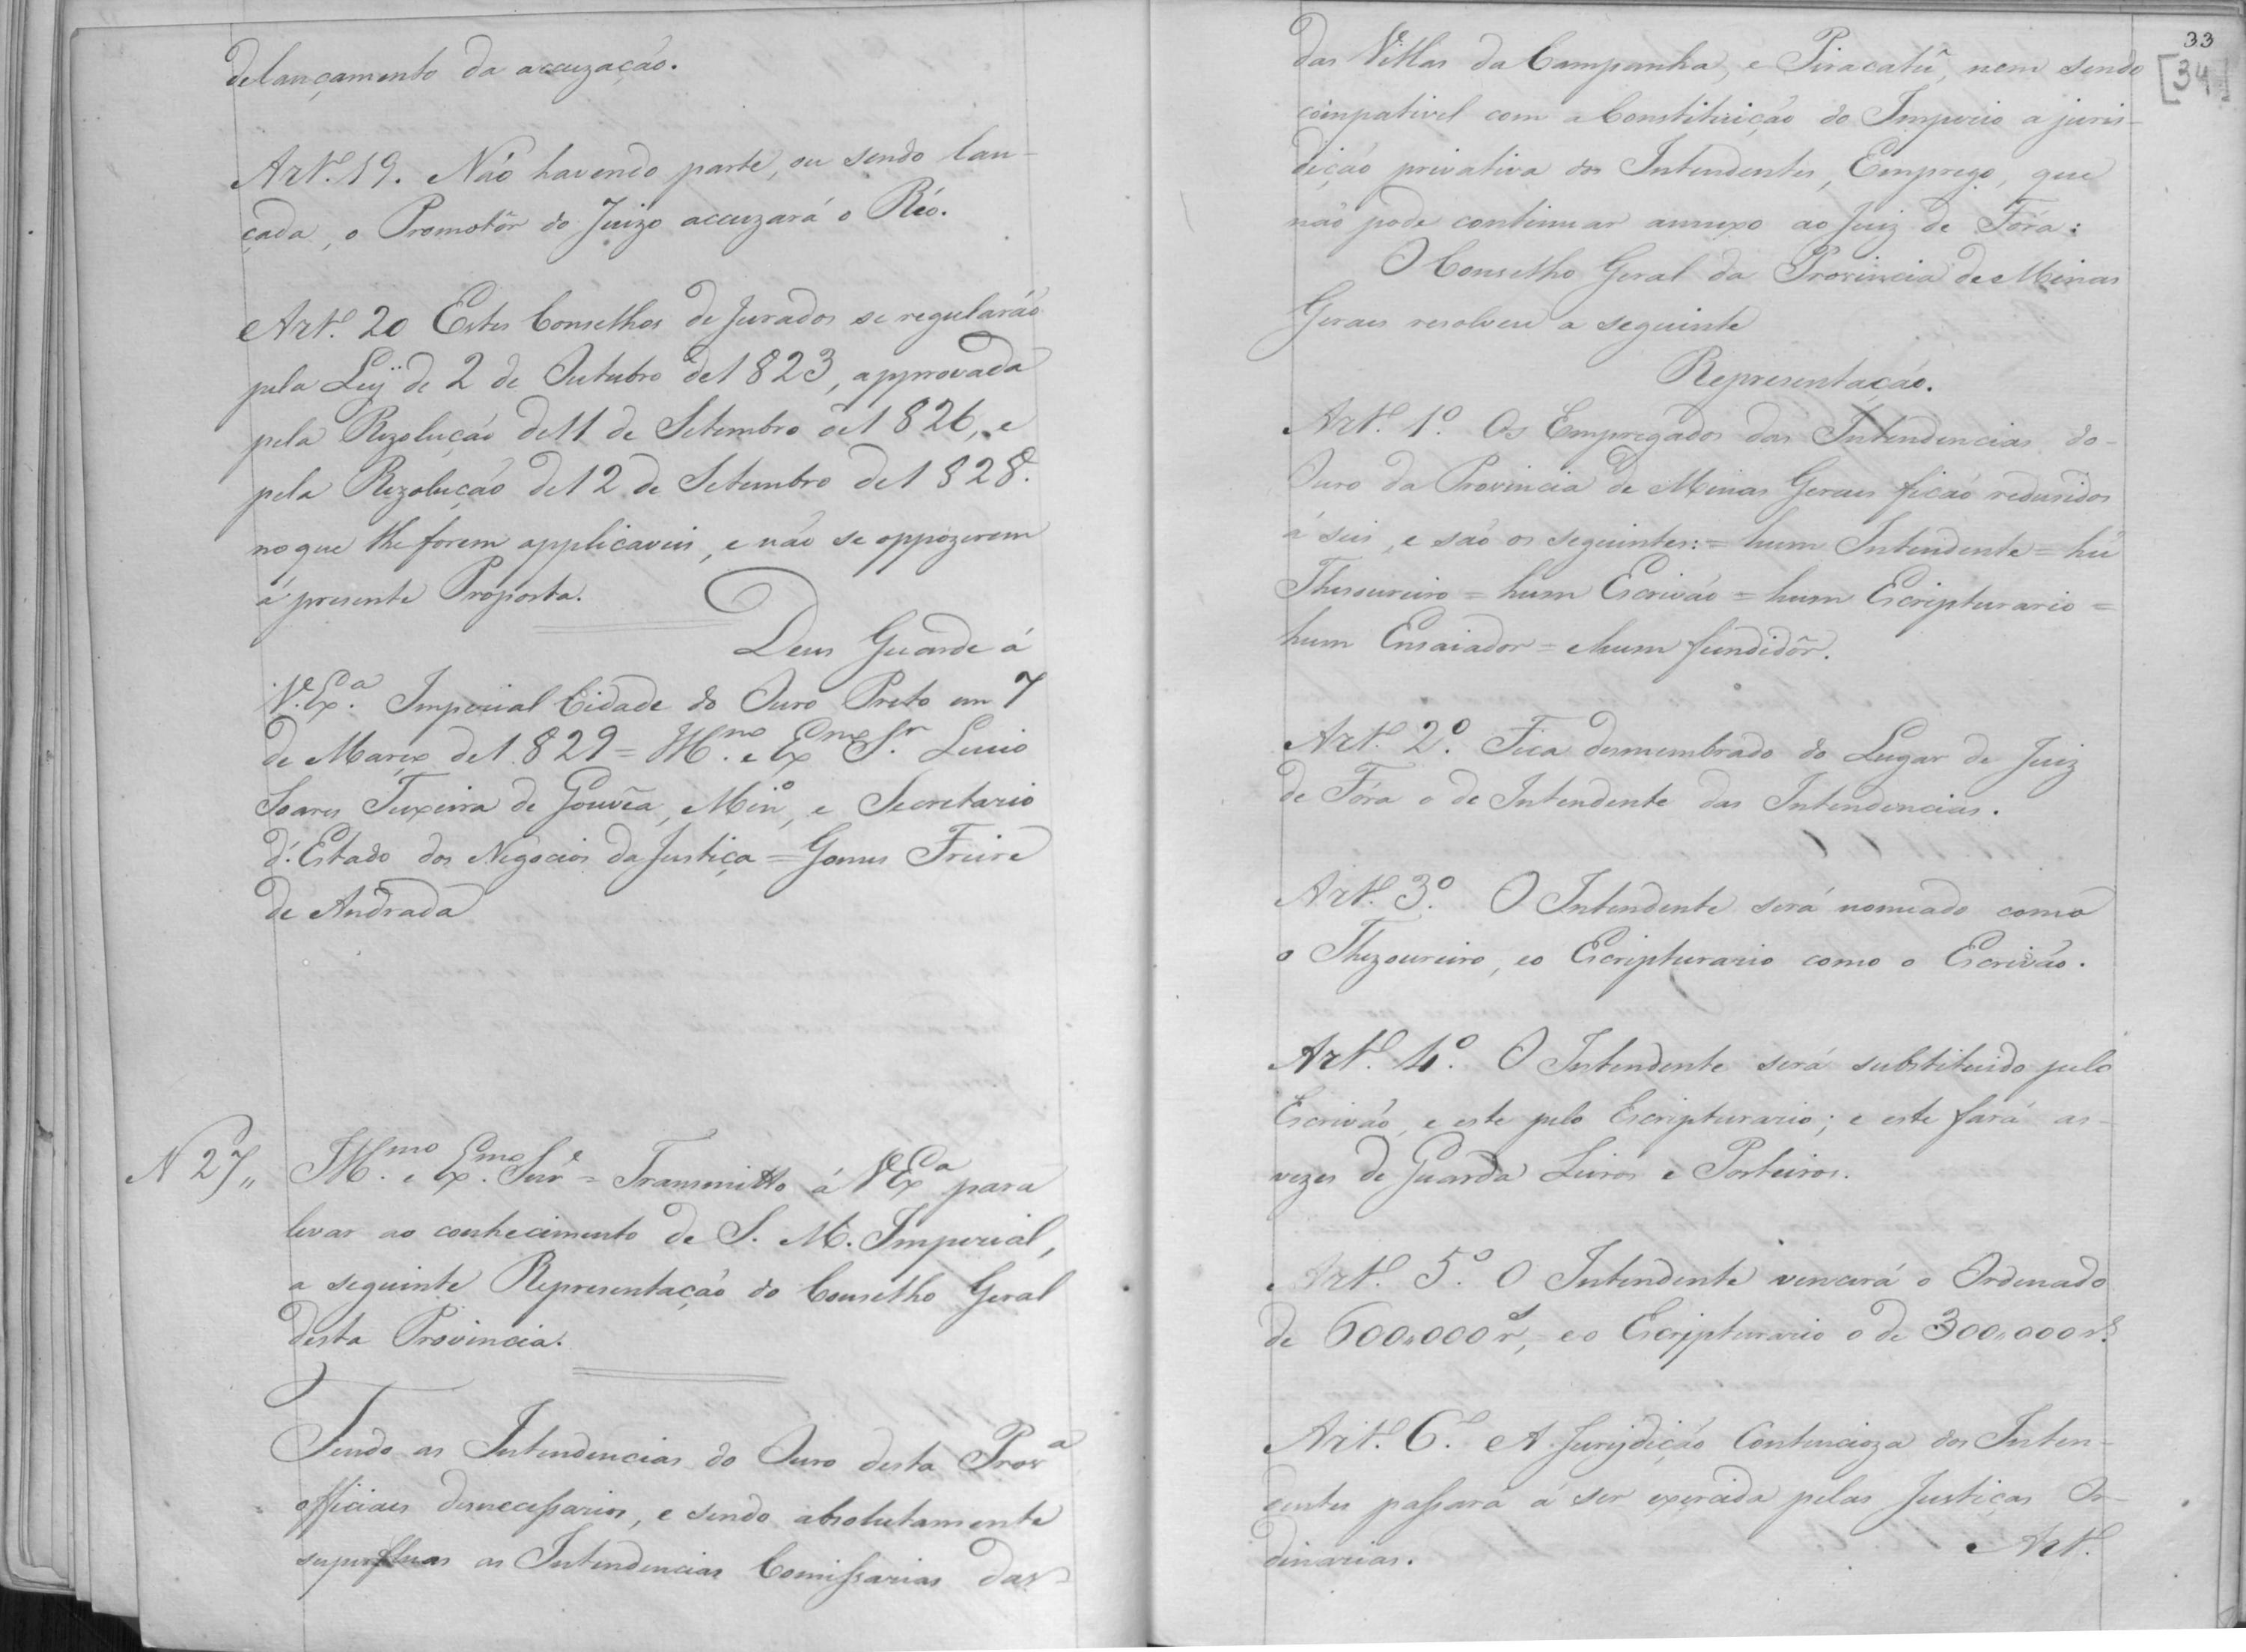 delançamento da accuzação.
Art.º 19. Não havendo parte, ou sendo lan-
çada, o Promotôr do Juizo accuzará o Réo.
Art.º 20 Estes Conselhos de Jurados se regularáõ
pela Leÿ de 2 de Outubro de 1823, approvada
pela Rezolução de 11 de Setembro de 1826, e
pela Rezolução de 12 de Setembro de 1828.
no que lhe forem applicaveis, e não se oppozerem
á presente Proposta.
Deus Guarde á
V. Exª. Imperial Cidade do Ouro Preto em 7
de Março de 1829 = Illmo. e Exmo Sr. Lucio
Soares Teixeira de Gouvêa, Mino, e Secretario
d'Estado dos Negocios da Justiça = Gomes Freire
de Andrada
N 27,, Illmo. e Exmo. Snr = Transmitto á V Exª para
levar ao conhecimento de S. M. Imperial,
a seguinte Representação do Conselho Geral
desta Provincia.
Tendo as Intendencias do Ouro desta Provª
officiaes desnecessarios, e sendo absolutamente
superfluas as Intendencias Comissarias das
33
[34]
das Villas da Campanha, e Piracatû, nem sendo
compativel com a Constituição do Imperio a juris-
dição privativa dos Intendentes, Emprego, que
não pode continuar annexo ao Juiz de Fóra:
O Conselho Geral da Provincia de Minas
Geraes resolveu a seguinte
Representação.
Art.º 1º. Os Empregados das Intendencias do-
Ouro da Provincia de Minas Geraes ficão redusidos
á seis, e são os seguintes: = hum Intendente = hũ
Thesoureiro = hum Escrivão = hum Escripturario =
hum Ensaiador = ehum fundidôr.
Art.º 2º. Fica desmembrado do Lugar de Juiz
de Fóra o de Intendente das Intendencias.
Art.º 3º. O Intendente será nomeado como
o Thezoureiro, eo Escripturario como o Escrivão.
Art.º 4º. O Intendente será substituido pelo
Escrivão, e este pelo Escripturario; e este fará as-
vezes de Guarda Livros e Porteiros.
Art.º 5º. O Intendente vencerá o Ordenado
de 600,000 rs, eo Escripturario o de 300,000 rs.
Art.º 6º. A Jurijdição Contencioza dos Inten-
dentes passará á ser exercida pelas Justiças Or-
dinarias.
Art.º